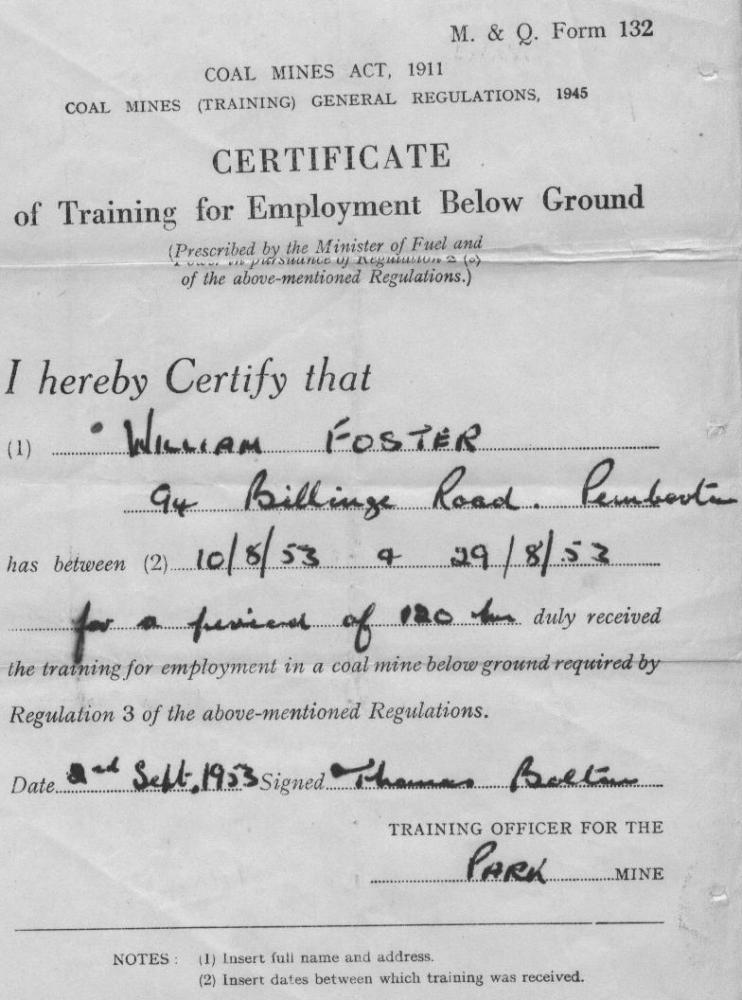 M. & Q. Form 132
COAL MINES ACT, 1911
COAL MINES (TRAINING) GENERAL REGULATIONS, 1945
CERTIFICATE
of Training for Employment Below Ground
(Prescribed by the Minister of Fuel and
Power in pursuance of Regulation 2 (o)
of the above-mentioned Regulations.)
I hereby Certify that
(1) WILLIAM FOSTER
94 Billinge Road. Pemberton
has between (2) 10/8/53 & 29/8/53
for a period of 120 hrs duly received
the training for employment in a coal mine below ground required by
Regulation 3 of the above-mentioned Regulations.
Date 2nd Sept, 1953 Signed Thomas Bolton
TRAINING OFFICER FOR THE
PARK MINE
NOTES : (1) Insert full name and address.
(2) Insert dates between which training was received.